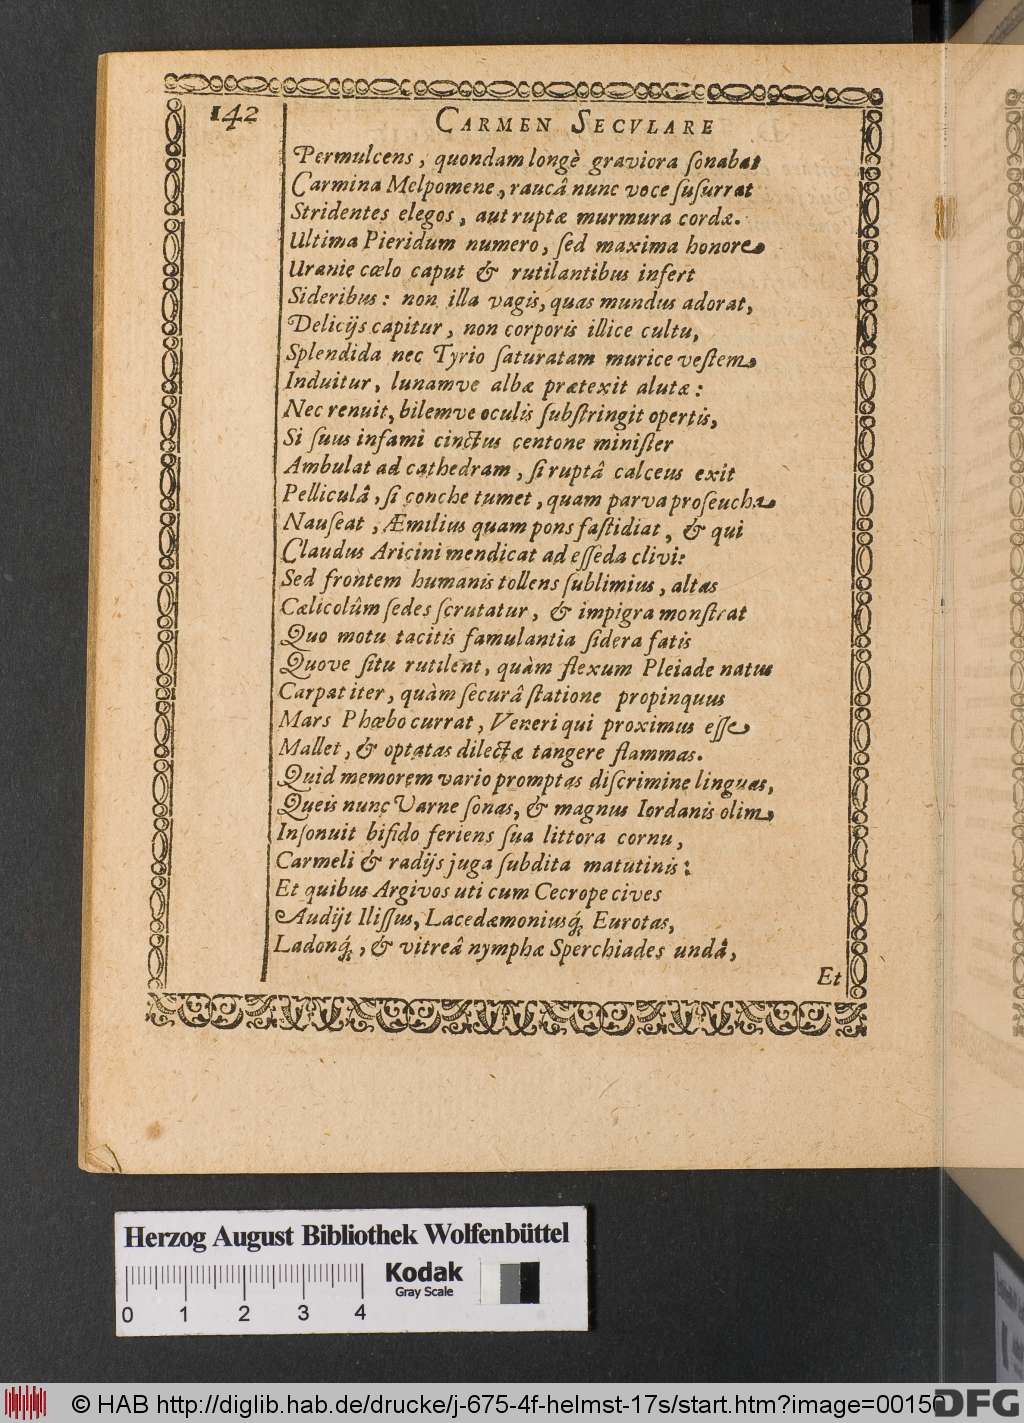 142
CARMEN SECVLARE
Permulcens, quondam longè graviora ſonabat
Carmina Melpomene, raucâ nunc voce ſuſurrat
Stridentes elegos, aut ruptæ murmura cordæ.
Ultima Pieridum numero, ſed maxima honore
Uranie cœlo caput & rutilantibus infert
Sideribus: non illa vagis, quas mundus adorat,
Delicijs capitur, non corporis illice cultu,
Splendida nec Tyrio ſaturatam murice veſtem
Induitur, lunamve albæ prætexit alutæ:
Nec renuit, bilemve oculis ſubſtringit opertis,
Si ſuus infami cinctus centone miniſter
Ambulat ad cathedram, ſi ruptâ calceus exit
Pelliculâ, ſi conche tumet, quam parva proſeucha
Nauſeat, Æmilius quam pons faſtidiat, & qui
Claudus Aricini mendicat ad eſſeda clivi:
Sed frontem humanis tollens ſublimius, altas
Cælicolûm ſedes ſcrutatur, & impigra monſtrat
Quo motu tacitis famulantia ſidera fatis
Quove ſitu rutilent, quàm flexum Pleiade natus
Carpat iter, quàm ſecurâ ſtatione propinquus
Mars Phœbo currat, Veneri qui proximus eſſe
Mallet, & optatas dilectæ tangere flammas.
Quid memorem vario promptas diſcrimine linguas,
Queis nunc Varne ſonas, & magnus Iordanis olim
Inſonuit bifido feriens ſua littora cornu,
Carmeli & radijs juga ſubdita matutinis:
Et quibus Argivos uti cum Cecrope cives
Audijt Iliſſus, Lacedæmoniusq́; Eurotas,
Ladonq́;, & vitreâ nymphæ Sperchiades undâ,
Et
Herzog August Bibliothek Wolfenbüttel
Kodak
Gray Scale
0 1 2 3 4
© HAB http://diglib.hab.de/drucke/j-675-4f-helmst-17s/start.htm?image=00150
DFG